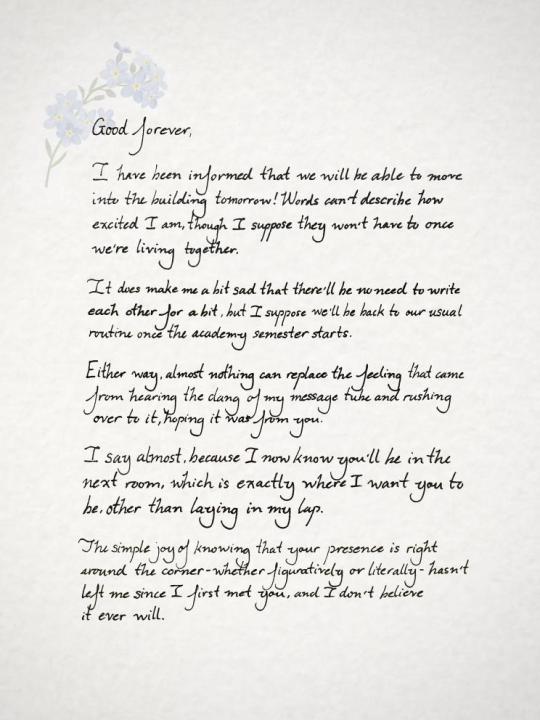 Good forever,
I have been informed that we will be able to move
into the building tomorrow! Words can't describe how
excited I am, though I suppose they won't have to once
we're living together.
It does make me a bit sad that there'll be no need to write
each other for a bit, but I suppose we'll be back to our usual
routine once the academy semester starts.
Either way, almost nothing can replace the feeling that came
from hearing the clang of my message tube and rushing
over to it, hoping it was from you.
I say almost, because I now know you'll be in the
next room, which is exactly where I want you to
be, other than laying in my lap.
The simple joy of knowing that your presence is right
around the corner - whether figuratively or literally - hasn't
left me since I first met you, and I don't believe
it ever will.